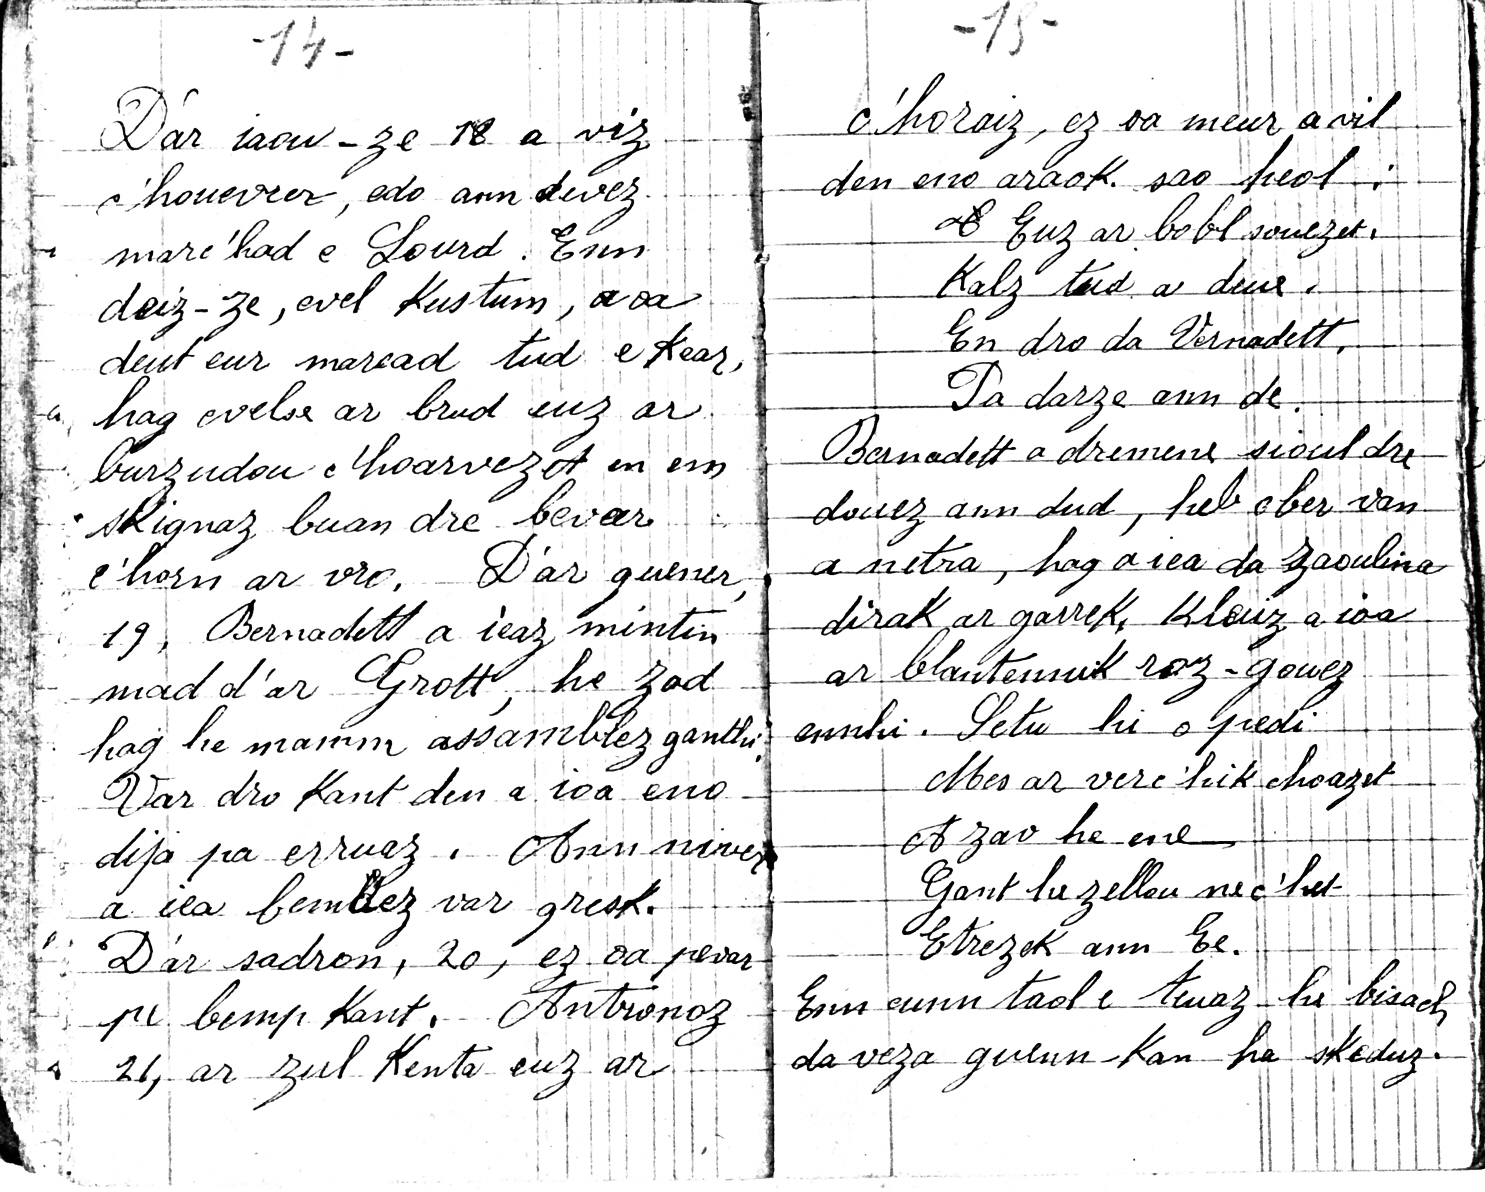 -14-
D'ar iaou-ze 18 a viz
c'houevrer, edo ann devez
marc'had e Lourd. Enn
deiz-ze, evel kustum, a oa
deut eur marcad tud e kear,
hag evelse ar brud euz ar
burzudou c'hoarvezet en em
skignaz buan dre bevar
c'horn ar vro. D'ar guener,
19, Bernadett a ieaz mintin
mad d'ar Grott, he zad
hag he mamm assamblez ganthi.
Var dro kant den a ioa eno
dija pa erruaz. Ann niver
a iea bemdez var gresk.
D'ar sadron, 20, ez oa pevar
pe bemp kant. Antronoz
21, ar zul kenta euz ar
-15-
c'horaiz, ez oa meur a vil
den eno araok sao heol:
Euz ar bobl souezet.
Kalz tud a deue.
En dro da Vernadett,
Pa darze ann de.
Bernadett a dremene sioul dre
douez ann dud, heb ober van
a netra, hag a iea da zaoulina
dirak ar garrek. Kleuz a ioa
ar blantennik roz-gouez
ennhi. Setu hi o pedi
Mes ar verc'hik choazet
A zav he ene
Gant he zellou nec'het
Etrezek ann Ee.
Enn eunn taol e teuaz he bisach
da veza guenn-kan ha skeduz.